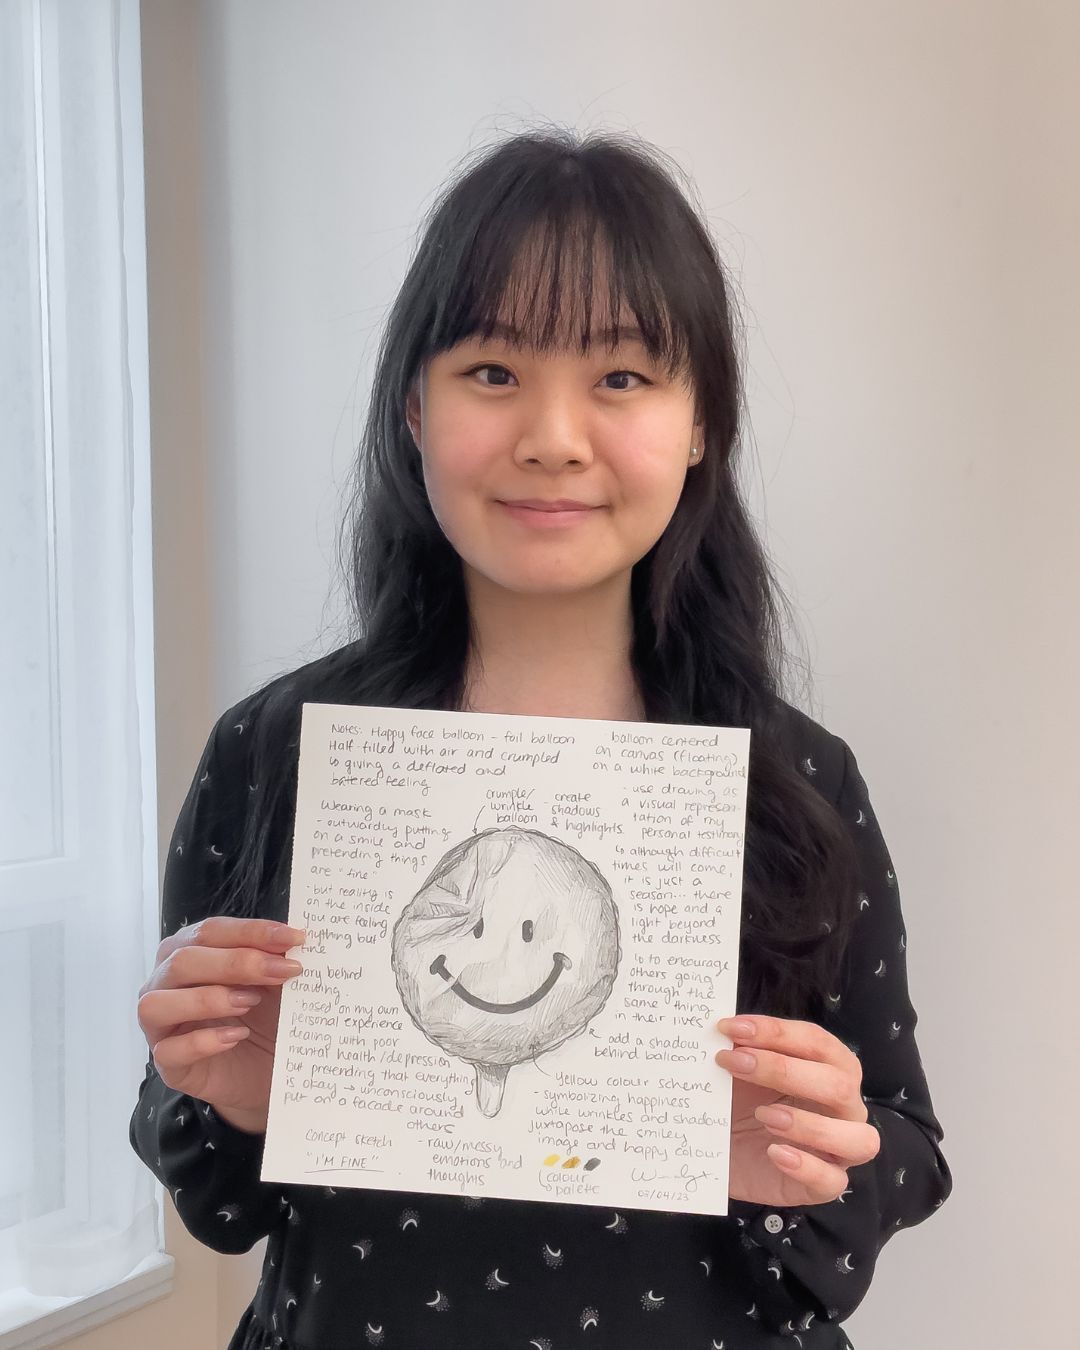 Notes: Happy face balloon - foil balloon
Half-filled with air and crumpled
↳ giving a deflated and
battered feeling
Wearing a mask
- outwardly putting
on a smile and
pretending things
are "fine"
- but reality is
on the inside
you are feeling
anything but
fine
story behind
drawing.
- based on my own
personal experience
dealing with poor
mental health/depression
but pretending that everything
is okay → unconsciously
put on a facade around
others
concept sketch
"I'M FINE"
- raw/messy
emotions and
thoughts
crumple/
wrinkle
balloon
- create
shadows
& highlights
- balloon centered
on canvas (floating)
on a white background
- use drawing as
a visual represen-
tation of my
personal testimony
↳ although difficult
times will come,
it is just a
season... there
is hope and a
light beyond
the darkness
↳ to encourage
others going
through the
same thing
in their lives
add a shadow
behind balloon?
yellow colour scheme
- symbolizing happiness
while wrinkles and shadows
juxtapose the smiley
image and happy colour
colour
palette
03/04/23